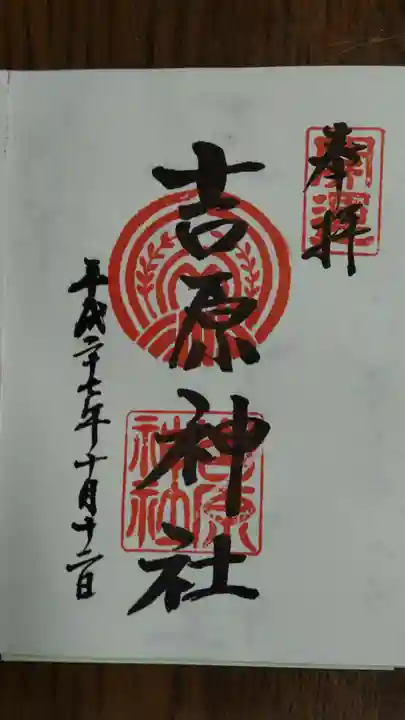 奉拝
開運
吉原神社
吉原
神社
平成二十七年十月十二日